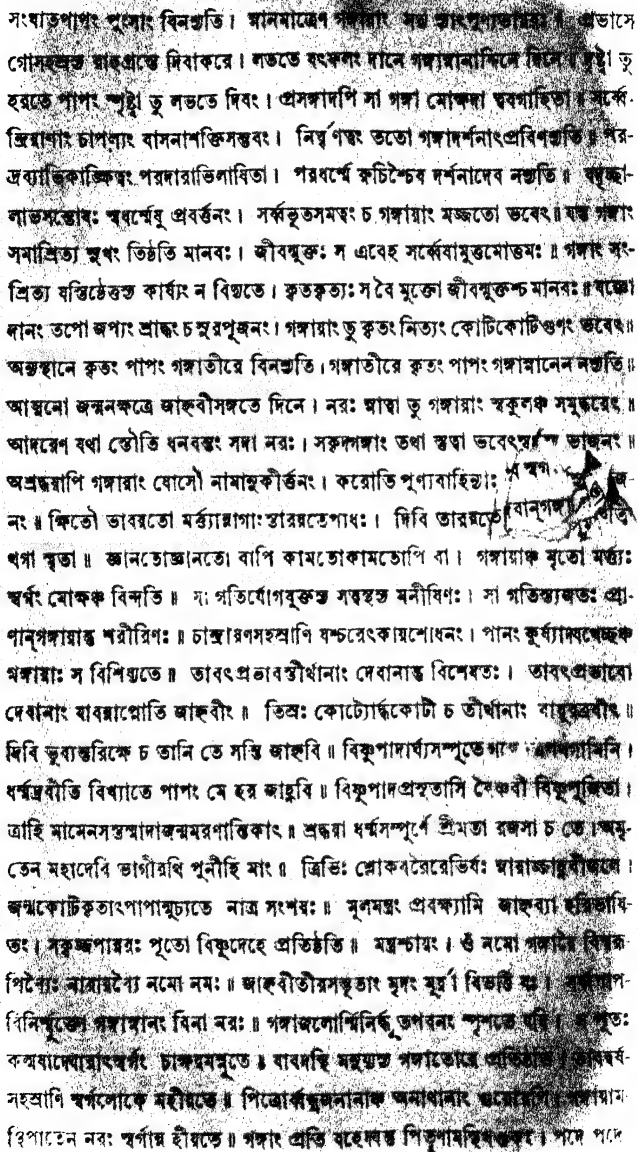 সংঘাতপাপং পুংসাং বিনশ্যতি। স্নানমাত্রেণ গঙ্গায়াং প্রভাসে
গোসহস্রন্ত রাহুগ্রস্তে দিবাকরে। লভতে যৎফলং দানে গঙ্গাস্নানাদ্দিনে দিনে॥ দৃষ্ট্বা তু
হরতে পাপং স্পৃষ্ট্বা তু লভতে দিবং। প্রসঙ্গাদপি সা গঙ্গা মোক্ষদা ত্ববগাহিতা॥ সর্ব্বে-
ন্দ্রিয়াণাং চাপল্যং বাসনাশক্তিসম্ভবং। নির্ঘৃণত্বং ততো গঙ্গাদর্শনাৎপ্রবিণশ্যতি॥ পর-
দ্রব্যাভিকাঙ্ক্ষিত্বং পরদারাভিলাষিতা। পরধর্ম্মে রুচিশ্চৈব দর্শনাদেব নশ্যতি॥ যদৃচ্ছা-
লাভসন্তোষঃ স্বধর্ম্মেষু প্রবর্ত্তনং। সর্ব্বভূতসমত্বং চ গঙ্গায়াং মজ্জতো ভবেৎ॥ যস্তু গঙ্গাং
সমাশ্রিত্য সুখং তিষ্ঠতি মানবঃ। জীবন্মুক্তঃ স এবেহ সর্ব্বেষামুত্তমোত্তমঃ॥ গঙ্গাং সং-
শ্রিত্য যস্তিষ্ঠেত্তস্য কার্য্যং ন বিদ্যতে। কৃতকৃত্যঃ স বৈ মুক্তো জীবন্মুক্তশ্চ মানবঃ॥ যজ্ঞো
দানং তপো জপ্যং শ্রাদ্ধং চ সুরপূজনং। গঙ্গায়াং তু কৃতং নিত্যং কোটিকোটিগুণং ভবেৎ॥
অন্যস্থানে কৃতং পাপং গঙ্গাতীরে বিনশ্যতি। গঙ্গাতীরে কৃতং পাপং গঙ্গাস্নানেন নশ্যতি॥
আত্মনো জন্মনক্ষত্রে জাহ্নবীসঙ্গতে দিনে। নরঃ স্নাত্বা তু গঙ্গায়াং স্বকুলঞ্চ সমুদ্ধরেৎ॥
আদরেণ যথা স্তৌতি ধনবন্তং সদা নরঃ। সকৃদ্গঙ্গাং তথা স্তুত্বা ভবেৎস্বর্গস্য ভাজনং॥
অশ্রদ্ধয়াপি গঙ্গায়াং যোসৌ নামানুকীর্ত্তনং। করোতি পুণ্যবাহিন্যাঃ স্বর্গ
নং॥ ক্ষিতৌ ভাবয়তো মর্ত্ত্যান্নাগাংস্তারয়তেপ্যধঃ। দিবি তারয়তে
থগা স্মৃতা॥ জ্ঞানতোজ্ঞানতো বাপি কামতোকামতোপি বা। গঙ্গায়াঞ্চ মৃতো মর্ত্ত্যঃ
স্বর্গং মোক্ষঞ্চ বিন্দতি॥ যা গতির্যোগযুক্তস্য সত্বস্থস্য মনীষিণঃ। সা গতিস্ত্যজতঃ প্রা-
ণান্গঙ্গায়ান্তু শরীরিণঃ॥ চান্দ্রায়ণসহস্রাণি যশ্চরেৎকায়শোধনং। পানং কুর্য্যাদ্যথেচ্ছঞ্চ
গঙ্গায়াঃ স বিশিষ্যতে॥ তাবৎপ্রভাবস্তীর্থানাং দেবানান্তু বিশেষতঃ। তাবৎপ্রভাবো
দেবানাং যাবন্নাপ্নোতি জাহ্নবীং॥ তিস্রঃ কোট্যোর্দ্ধকোটী চ তীর্থানাং বায়ুরব্রবীৎ॥
দিবি ভুব্যন্তরিক্ষে চ তানি তে সন্তি জাহ্নবি॥ বিষ্ণুপাদার্ঘ্যসম্পূতে গঙ্গে ত্রিপথগামিনি।
ধর্ম্মদ্রবীতি বিখ্যাতে পাপং মে হর জাহ্নবি॥ বিষ্ণুপাদপ্রসূতাসি বৈষ্ণবী বিষ্ণুপূজিতা।
ত্রাহি মামেনসস্তস্মাদাজন্মমরণান্তিকাৎ॥ শ্রদ্ধয়া ধর্ম্মসম্পূর্ণে শ্রীমতা রজসা চ তে। অমৃ-
তেন মহাদেবি ভাগীরথি পুনীহি মাং॥ ত্রিভিঃ শ্লোকবরৈরেভির্যঃ স্নায়াজ্জাহ্নবীজলে।
জন্মকোটিকৃতাৎপাপান্মুচ্যতে নাত্র সংশয়ঃ॥ মূলমন্ত্রং প্রবক্ষ্যামি জাহ্নব্যা হরিভাষি-
তং। সকৃজ্জপান্নরঃ পূতো বিষ্ণুদেহে প্রতিষ্ঠতি॥ মন্ত্রশ্চায়ং। ওঁ নমো গঙ্গায়ৈ বিশ্বরূ-
পিণ্যৈঃ নারায়ণ্যৈ নমো নমঃ॥ জাহ্নবীতীরসম্ভূতাং মৃদং মূর্দ্ধ্না বিভর্ত্তি যঃ।
বিনির্মুক্তো গঙ্গাস্নানং বিনা নরঃ॥ গঙ্গাজলোর্ম্মিনির্ধূতপবনং স্পৃশতে যদি। স পূতঃ
কল্মষাদ্ঘোরাৎস্বর্গং চাক্ষয়মশ্নুতে॥ যাবদস্থি মনুষ্যস্য গঙ্গাতোয়ে প্রতিষ্ঠতি। তাবদ্বর্ষ-
সহস্রাণি স্বর্গলোকে মহীয়তে॥ পিত্রোর্ব্বন্ধুজনানাঞ্চ অনাথানাং গুরোরপি। গঙ্গায়াম-
স্থিপাতেন নরঃ স্বর্গান্ন হীয়তে॥ গঙ্গাং প্রতি বহেদ্যস্তু পদে পদে